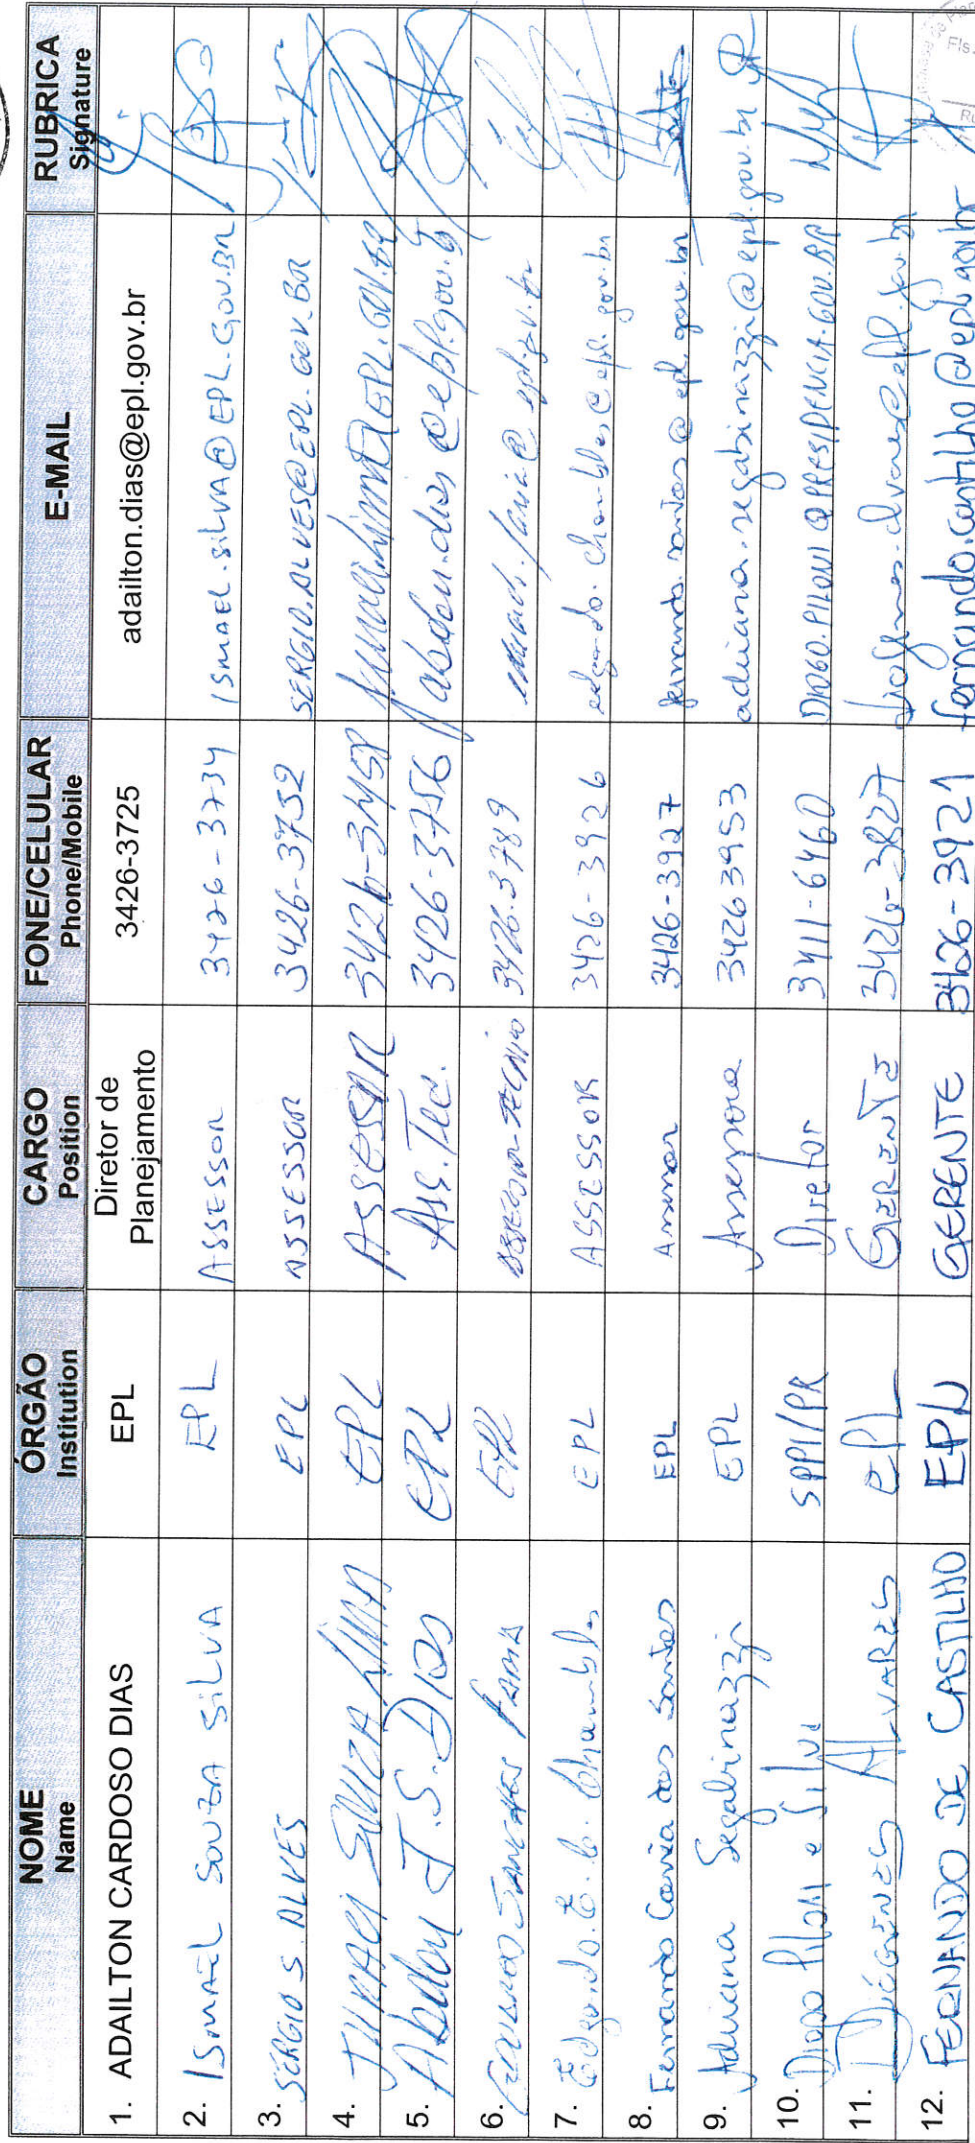 NOME ÓRGÃO CARGO FONE/CELULAR E-MAIL RUBRICA
Name Institution Position Phone/Mobile Signature
1. ADAILTON CARDOSO DIAS EPL Diretor de Planejamento 3426-3725 adailton.dias@epl.gov.br
2. ISMAEL SOUZA SILVA EPL ASSESSOR 3426-3734 ISMAEL.SILVA@EPL.GOV.BR
3. SÉRGIO S. ALVES EPL ASSESSOR 3426-3732 SERGIO.ALVES@EPL.GOV.BR
4. JURACI SOUZA LIMA EPL ASSESSOR @EPL.GOV.BR
5. Abdon J.S. Dias EPL Ass. Tec. 3426-3756 abdon.dias@epl.gov.br
6. EPL 3426.3789
7. EPL ASSESSOR 3426-3926
8. Fernando Corrêa dos Santos EPL Assessor 3426-3927 fernando.santos@epl.gov.br
9. Adriana Segabinazzi EPL Assessora 34263953 adriana.segabinazzi@epl.gov.br
10. Diogo Piloni e Silva SPPI/PR Diretor 3411-6460 DIOGO.PILONI@PRESIDENCIA.GOV.BR
11. DIÓGENES ALVARES EPL GERENTE 3426-3827 diogenes.alvares@epl.gov.br
12. FERNANDO DE CASTILHO EPL GERENTE 3426-3921 fernando.castilho@epl.gov.br
Fls.